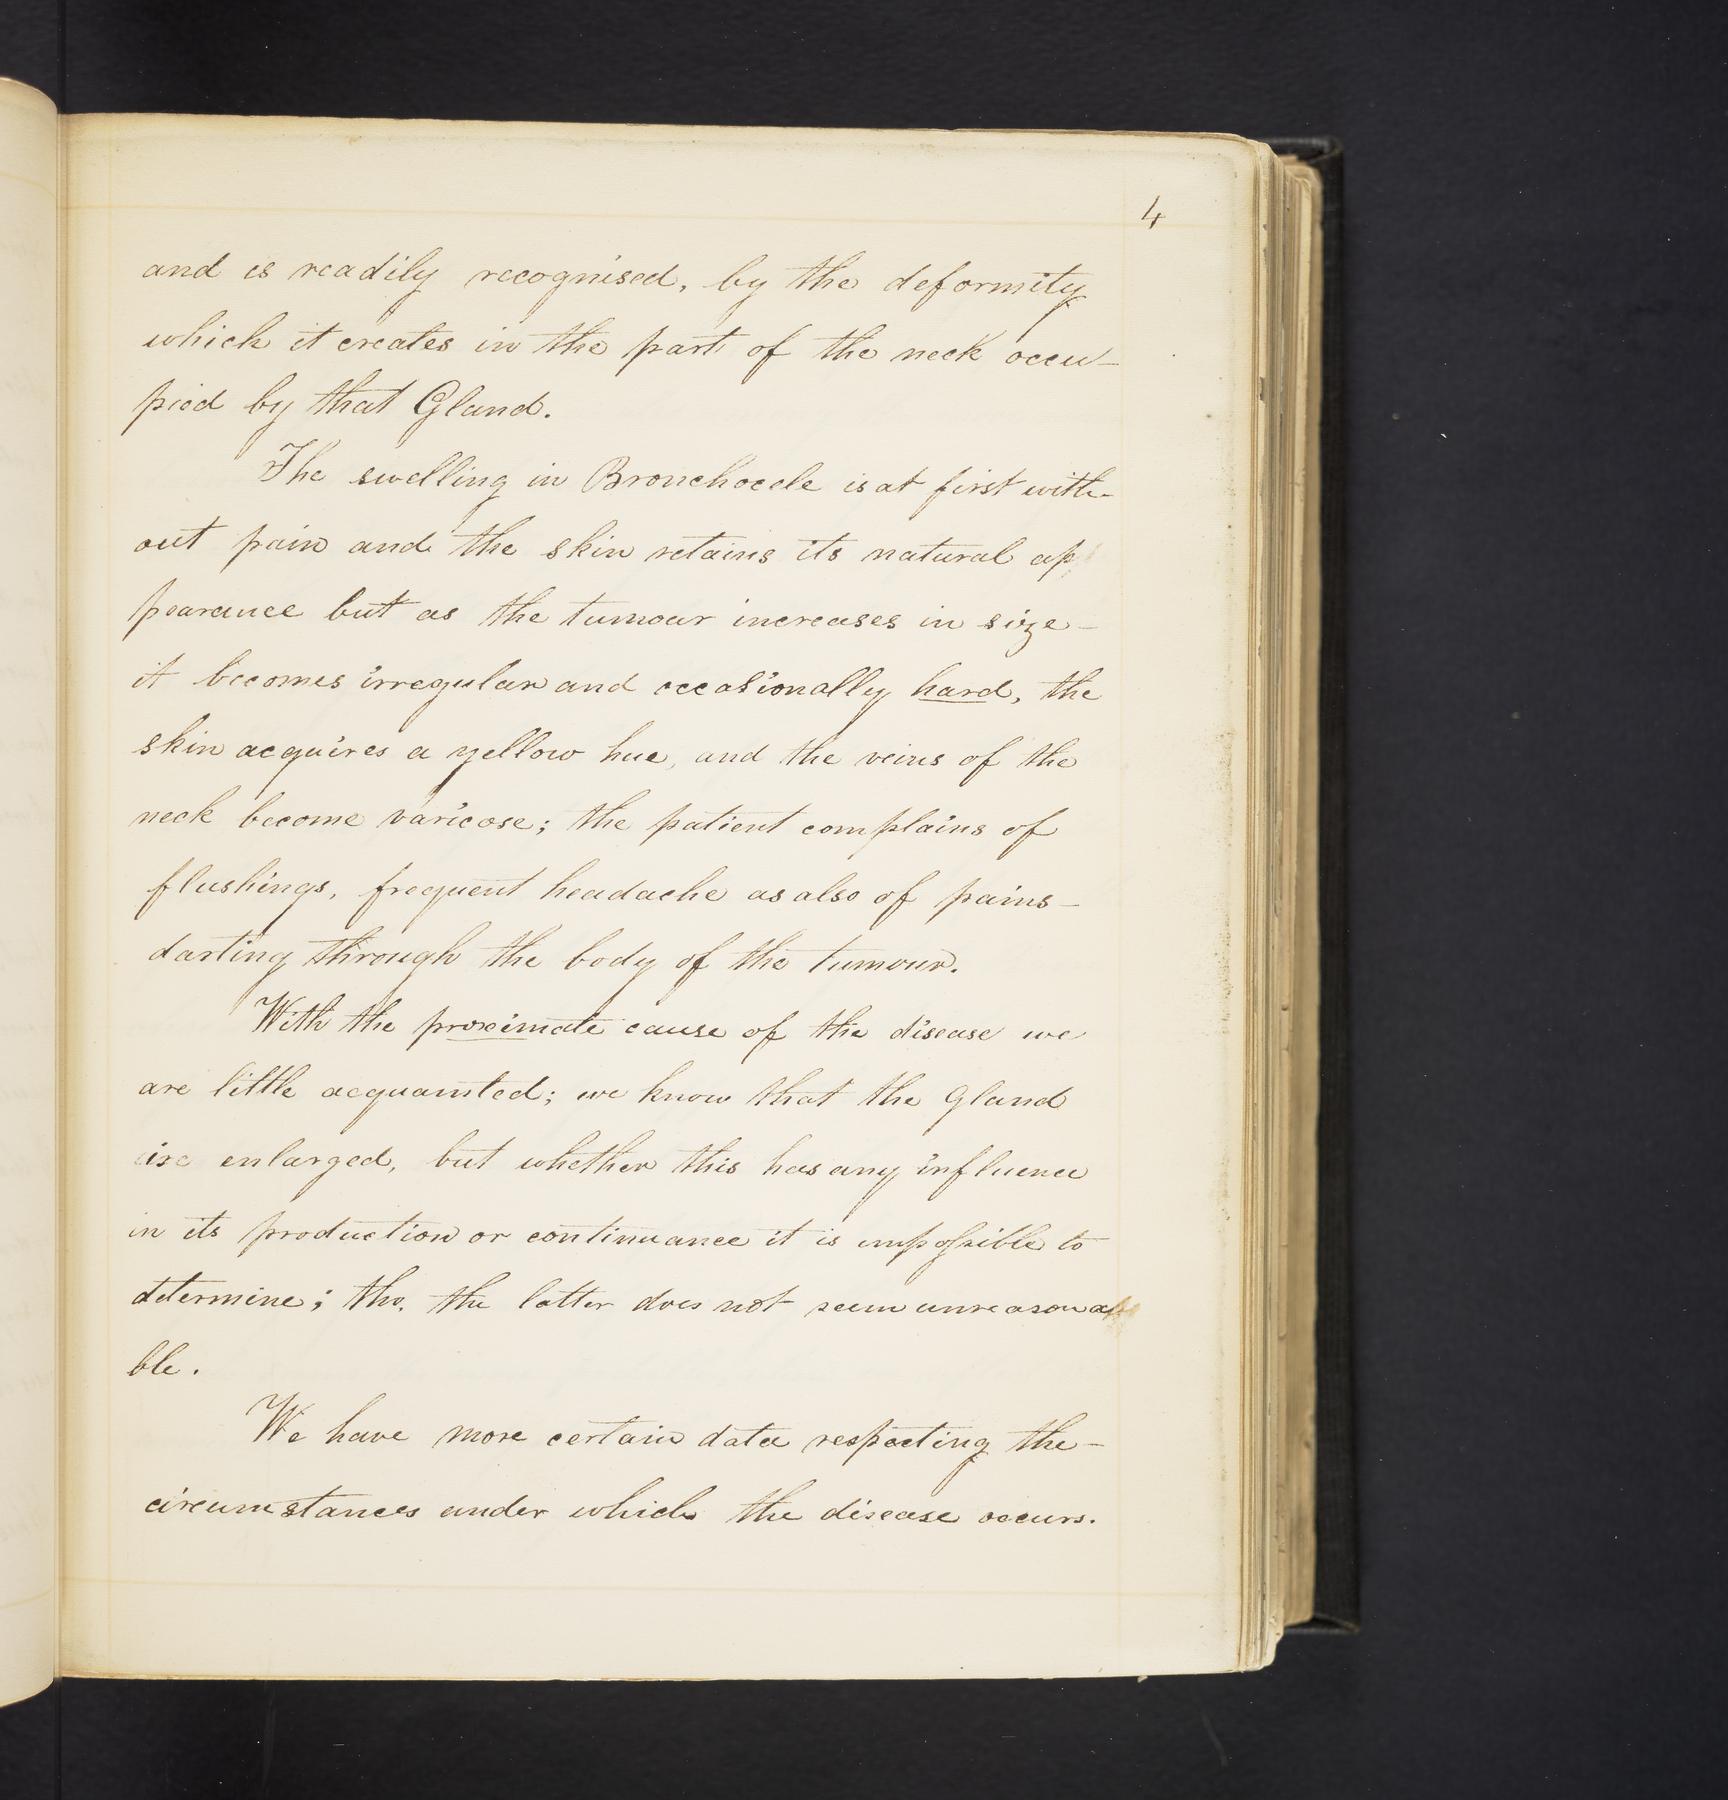 4
and is readily recognised, by the deformity
which it creates in the part of the neck occu-
pied by that Gland.
The swelling in Bronchocele is at first with-
out pain and the skin retains its natural ap
pearance but as the tumour increases in size -
it becomes irregular and occasionally hard, the
skin acquires a yellow hue, and the veins of the
neck become varicose; the patient complains of
flushings, frequent headache as also of pains -
darting through the body of the tumour.
With the proximate cause of the disease we
are little acquainted; we know that the Gland
is enlarged, but whether this has any influence
in its production or continuance it is impossible to
determine; tho. the latter does not seem unreasona
ble.
We have more certain data respecting the -
circumstances under which the disease occurs.